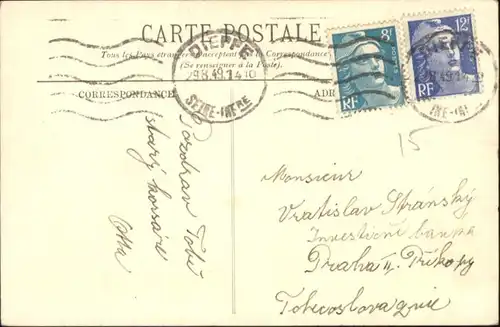 CARTE POSTALE
Tous les Pays étrangers n'acceptent pas la Correspondance
(Se renseigner à la Poste)
CORRESPONDANCE
ADR
DIEPPE
29.8.49.14 10
SEINE-INFRE
8F
RF
12F
RF
15
Pozdrav Tobě
starý korsáre
Monsieur
Vratislav Stránský
Investiční banka
Praha II. Příkopy
Tchecoslovaquie